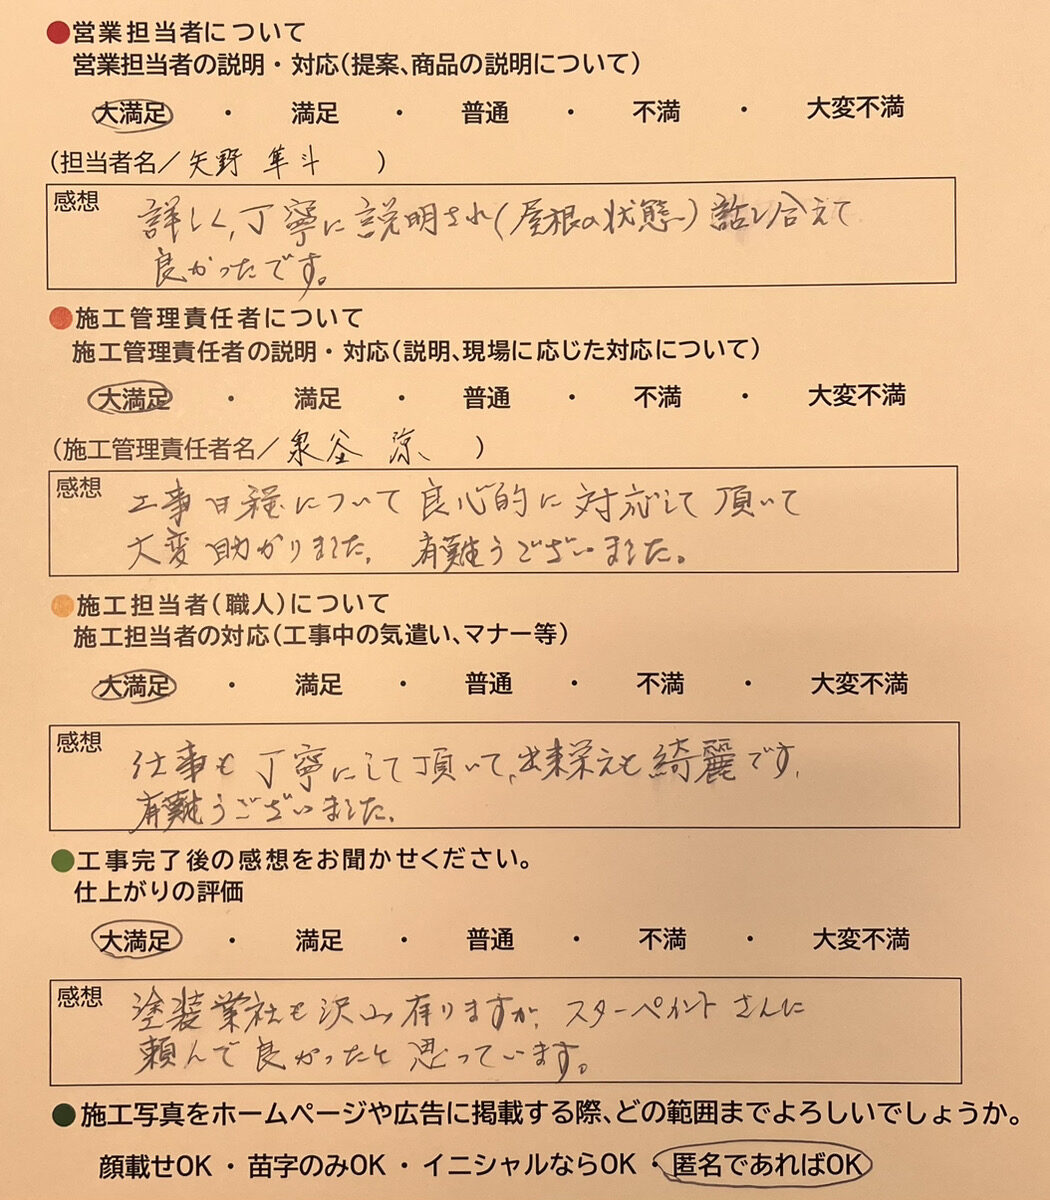 ●営業担当者について
営業担当者の説明・対応(提案、商品の説明について)
大満足 ・ 満足 ・ 普通 ・ 不満 ・ 大変不満
(担当者名/矢野 隼斗 )
感想
詳しく,丁寧に説明され(屋根の状態)話し合えて
良かったです。
●施工管理責任者について
施工管理責任者の説明・対応(説明、現場に応じた対応について)
大満足 ・ 満足 ・ 普通 ・ 不満 ・ 大変不満
(施工管理責任者名/泉谷 涼 )
感想
工事日程について良心的に対応して頂いて
大変助かりました。有難うございました。
●施工担当者(職人)について
施工担当者の対応(工事中の気遣い、マナー等)
大満足 ・ 満足 ・ 普通 ・ 不満 ・ 大変不満
感想
仕事も丁寧にして頂いて、出来栄えも綺麗です。
有難うございました。
●工事完了後の感想をお聞かせください。
仕上がりの評価
大満足 ・ 満足 ・ 普通 ・ 不満 ・ 大変不満
感想
塗装業社も沢山有りますが、スターペイントさんに
頼んで良かったと思っています。
●施工写真をホームページや広告に掲載する際、どの範囲までよろしいでしょうか。
顔載せOK・苗字のみOK・イニシャルならOK・匿名であればOK